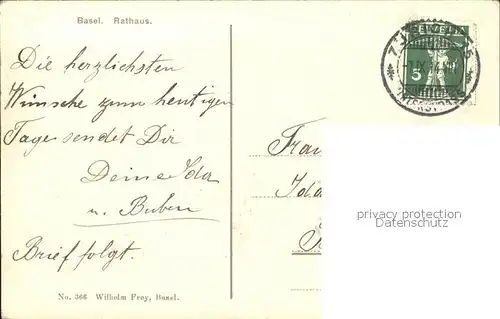 Basel. Rathaus.
Die herzlichsten
Wünsche zum heutigen
Tage sendet Dir
Deine Ida
u. Buben
Brief folgt.
No. 366 Wilhelm Frey, Basel.
5
Frau
Ida
privacy protection
Datenschutz